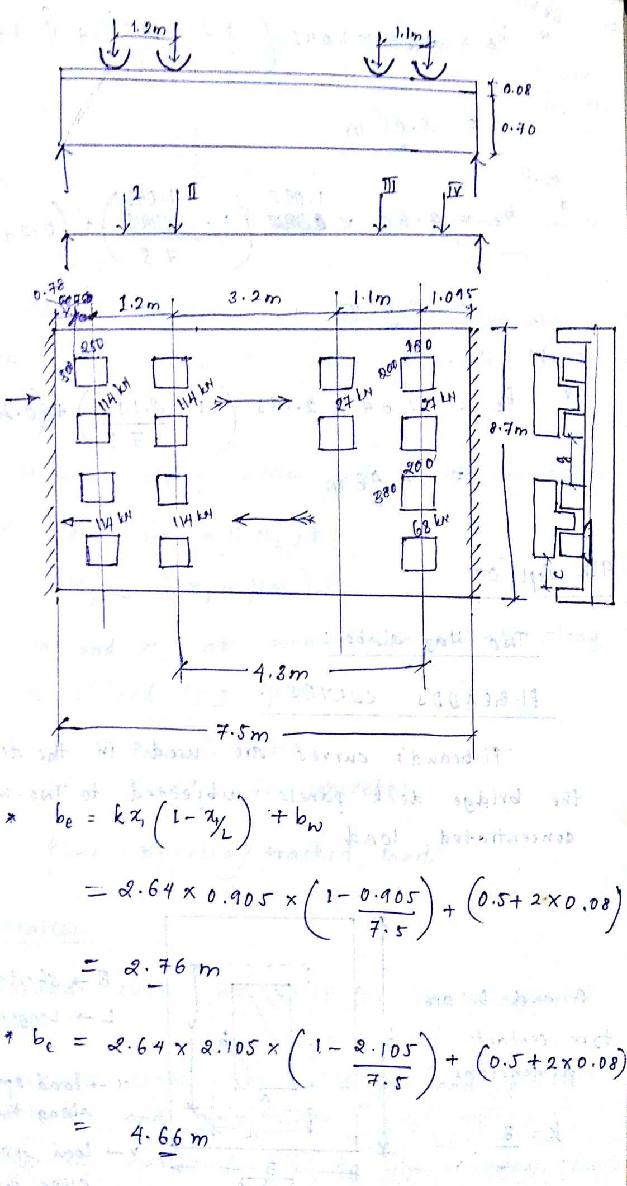 1.2m 1.1m
0.08
0.70
I II III IV
0.78
1.2m 3.2m 1.1m 1.095
250 160
500 200
114 kN 114 kN 27 kN 27 kN
8.7m
200
380
114 kN 114 kN 68 kN
g
c
4.8m
7.5m
* be = kx₁ (1 - x₁/L) + bw
= 2.64 x 0.905 x (1 - 0.905/7.5) + (0.5 + 2 x 0.08)
= 2.76 m
* be = 2.64 x 2.105 x (1 - 2.105/7.5) + (0.5 + 2 x 0.08)
= 4.66 m